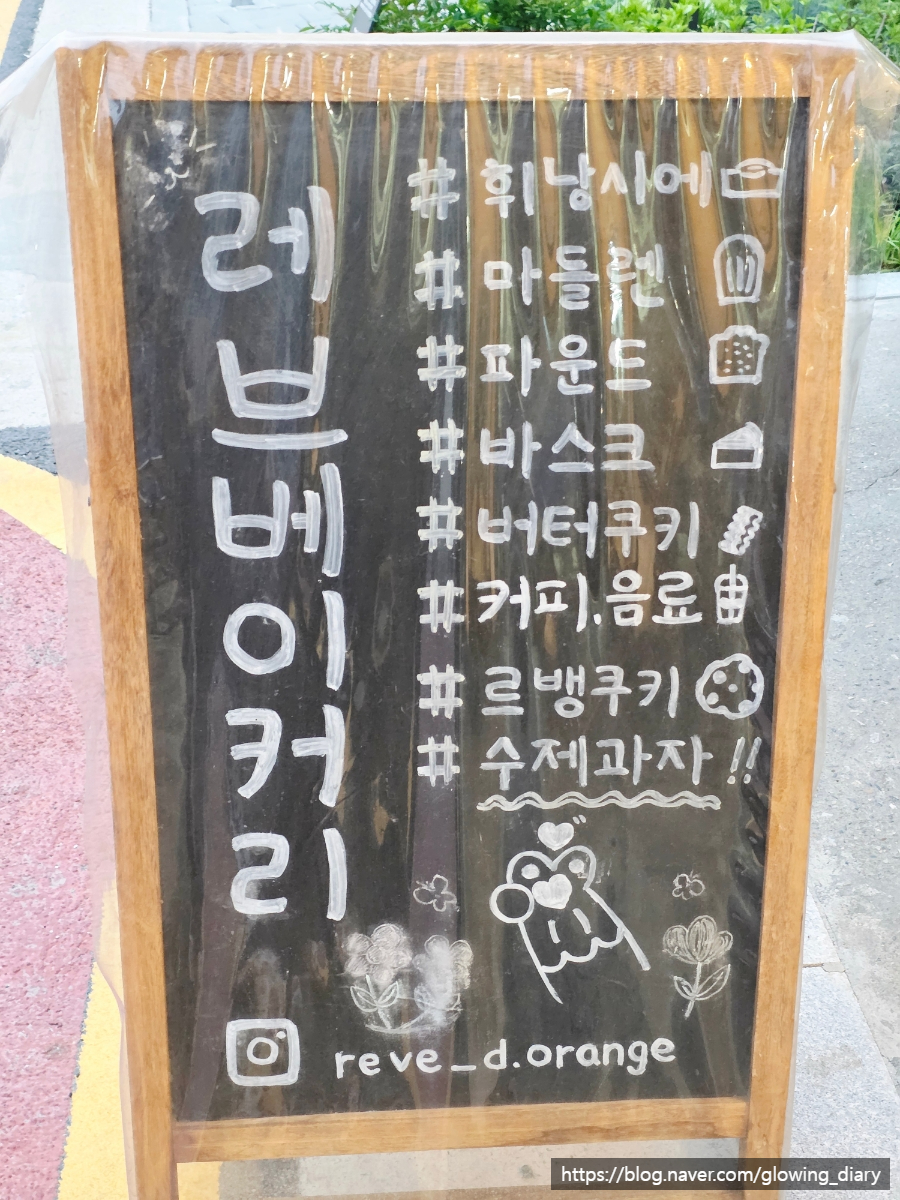 레브베이커리
# 휘낭시에
# 마들렌
# 파운드
# 바스크
# 버터쿠키
# 커피.음료
# 르뱅쿠키
# 수제과자 !!
reve_d.orange
https://blog.naver.com/glowing_diary